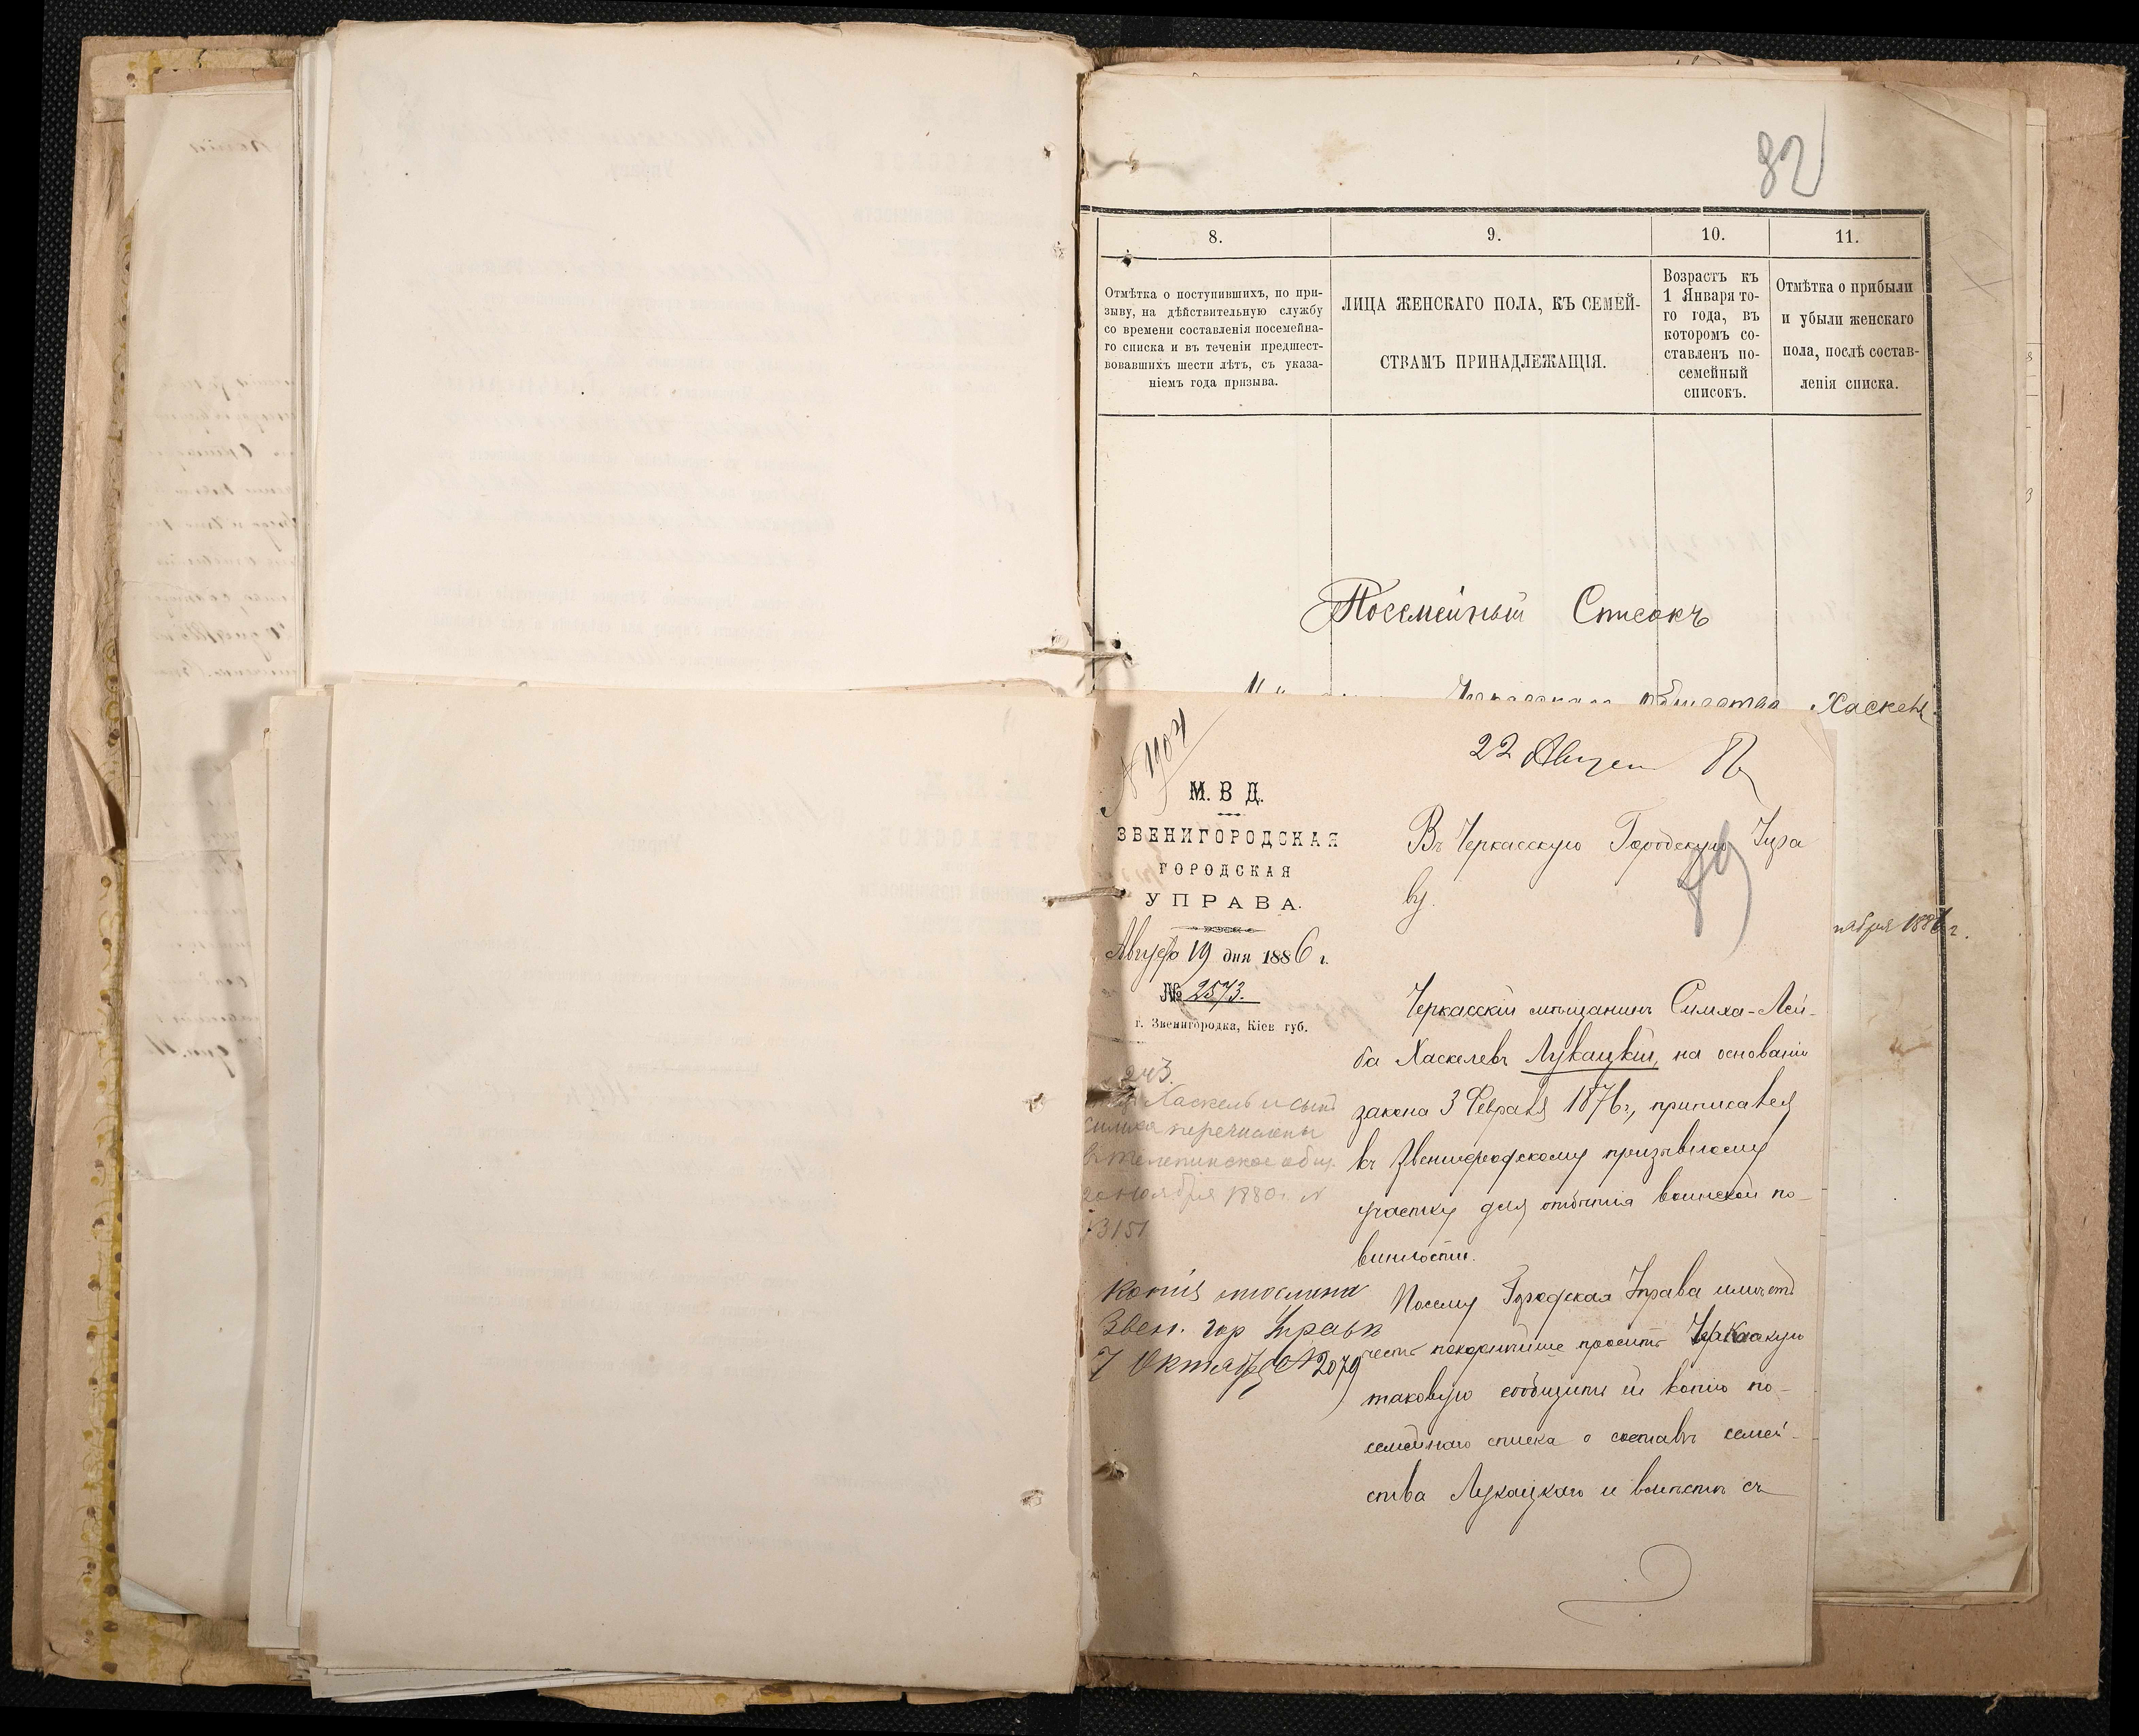 82
8.
9.
10.
11.
Отмѣтка о поступившихъ, по при-
зыву, на дѣйствительную службу
со времени составленія посемейна-
го списка и въ теченіи предшест-
вовавшихъ шести лѣтъ, съ указа-
ніемъ года призыва.
ЛИЦА ЖЕНСКАГО ПОЛА, КЪ СЕМЕЙ-
СТВАМЪ ПРИНАДЛЕЖАЩІЯ.
Возрастъ къ
1 Января то-
го года, въ
которомъ со-
ставленъ по-
семейный
списокъ.
Отмѣтка о прибыли
и убыли женскаго
пола, послѣ состав-
ленія списка.
Посемейный Списокъ
Черкасскаго общества Хаскеля
22 Август
М. В. Д.
ЗВЕНИГОРОДСКАЯ
ГОРОДСКАЯ
УПРАВА.
Август 19 дня 1886 г.
№ 2573.
г. Звенигородка, Кіев губ.
Въ Черкасскую Городскую Упра
ву.
Черкасскій мѣщанинъ Симха-Лей-
ба Хаскелевъ Лукацкій, на основаніи
закона 3 Февраля 1876 г., приписался
къ Звенигородскому призывному
участку для отбытія воинской по-
винности.
Посему Городская Управа имѣетъ
честь покорнѣйше просить Черкасскую
таковую сообщить ей копію по-
семейнаго списка о составѣ семей-
ства Лукацкаго и вмѣстѣ съ
243.
Хаскель и сынъ
Симха перечислены
в Телепинское общ.
20 Ноября 1880 г. №
3151
Копія отослана
Звен. гор Управѣ
7 Октября № 2079